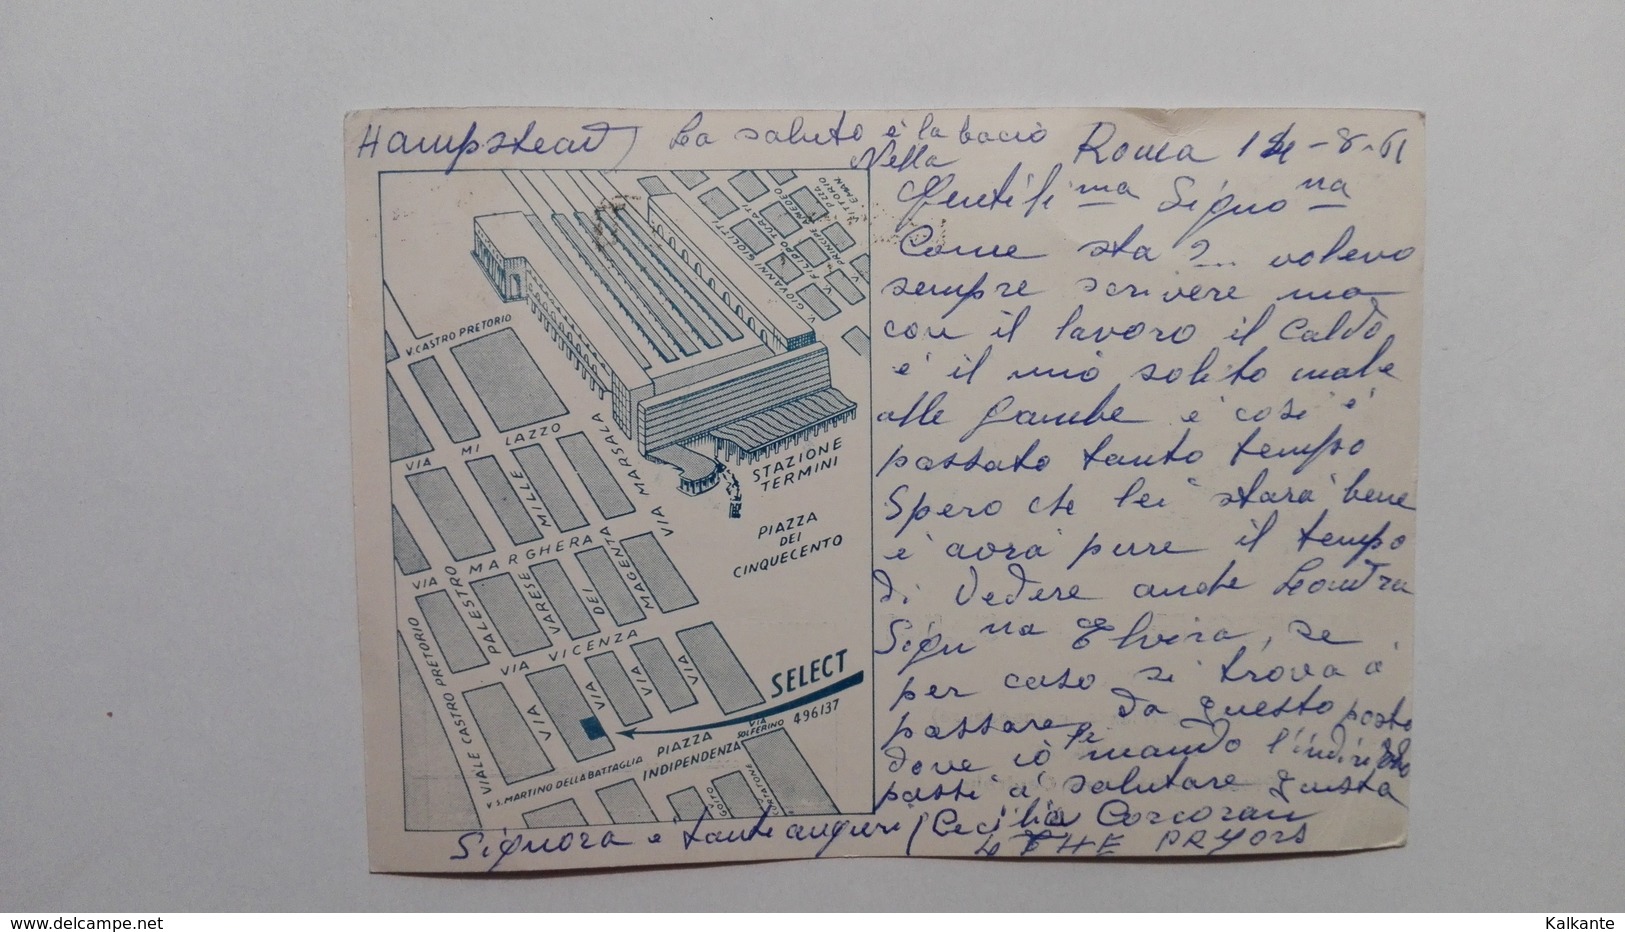 Hampstead) La saluto e' la bacio
Nella
Roma 14-8-61
Gentili.ma Signo.na
Come sta?... volevo
sempre scrivere ma
con il lavoro il Caldo,
e' il mio solito male
alle Gambe e' cosi e'
passato tanto tempo
Spero che lei stara' bene
e' avra' pure il tempo
di Vedere anche Londra
Sign.na Elvira, se
per caso si trova a'
passare da questo posto
dove io le mando l'indirizzo
passi a' salutare questa
Signora e' tanti auguri (Cecilia Corcoran
4 THE PRYORS
V. CASTRO PRETORIO
VIA MILAZZO
VIA MARSALA
VIA MARGHERA
MILLE
VIA PALESTRO
VARESE
DEI
MAGENTA
VIA VICENZA
VIA
VIA
VIA
VIA
VIALE CASTRO PRETORIO
V. S. MARTINO DELLA BATTAGLIA
PIAZZA
INDIPENDENZA
VIA
SOLFERINO
GOITO
CURTATONE
V. GIOVANNI GIOLITTI
V. FILIPPO TURATI
V. PRINCIPE AMEDEO
PZZA
VITTORIO
EMAN.
STAZIONE
TERMINI
PIAZZA
DEI
CINQUECENTO
SELECT
496137
www.delcampe.net
Kalkante